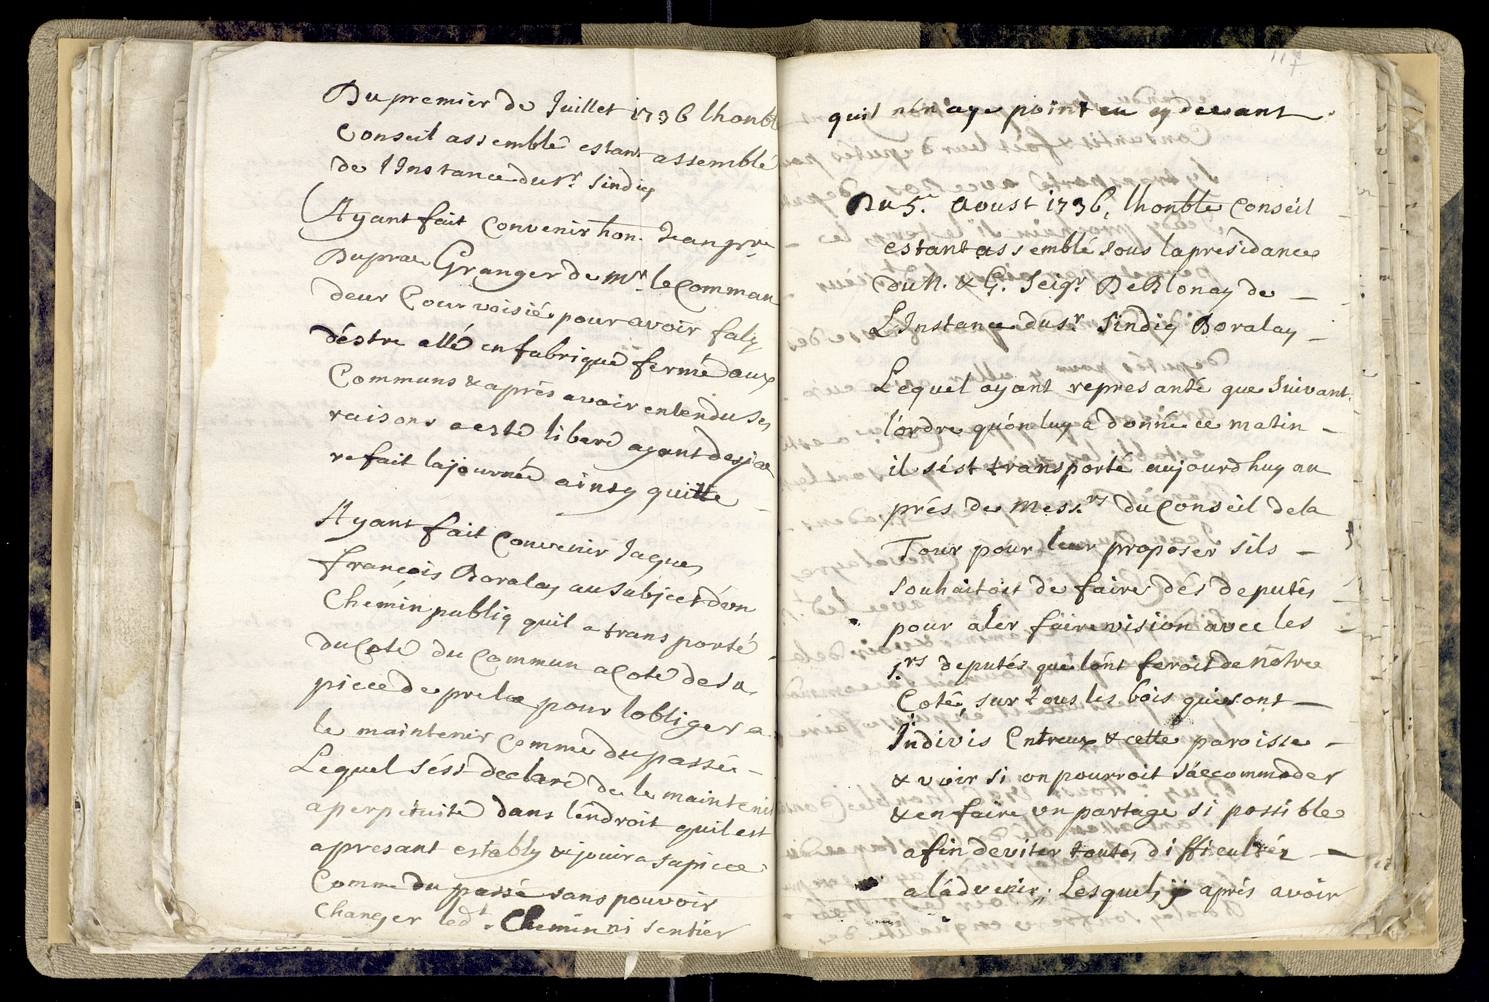 Du premier de Juillet 1736 lhonble
Conseil assemblé estant assemblé
de l'Instance du Sr. Sindiq
Ayant fait Convenir hon. Jean
Duprae Granger de Mr. le Comman
deur Courvoisié pour avoir
d'éstre allé en fabrique fermé aux
Communs & aprés avoir entendu ses
raisons a esté liberé ayant
refait la journée ainsy quitte
Ayant fait Convenir Jaques
françois Boralay au subject d'vn
Chemin publiq quil a transporté
du Coté du Commun a Coté de sa
piece de pre pour lobliger a
le maintenir Comme du passé
Lequel s'ést declaré de le maintenir
a perpetuité dans l'éndroit quil est
apresant establ'y & jouira sa piece
Comme du passé sans pouvoir
Changer led.t Chemin ni sentier
117
quil n'én aye point eu cy devant
Du 5.e Aoust 1736, lhonble Conseil
estant assemblé sous la présidance
du N. & G. Seigr. DeBlonay de
L'Instance du sr Sindiq Boralay
Lequel ayant represanté que suivant
l'ordre qu'on luy a donné ce matin
il s'ést transporté aujourdhuy au
prés de Mess.rs du Conseil de la
Tour pour leur proposer sils
souhaitoit de faire dés deputés
pour aler faire vision avec les
srs deputés que lont feroit de nôtre
Coté, sur tous les bois qui sont
Indivis Entreux & cette paroisse
& voir si on pourroit s'áccommoder
& en faire un partage si possible
afin deviter toutes difficultés
a l'ádvenir, Lesquels aprés avoir